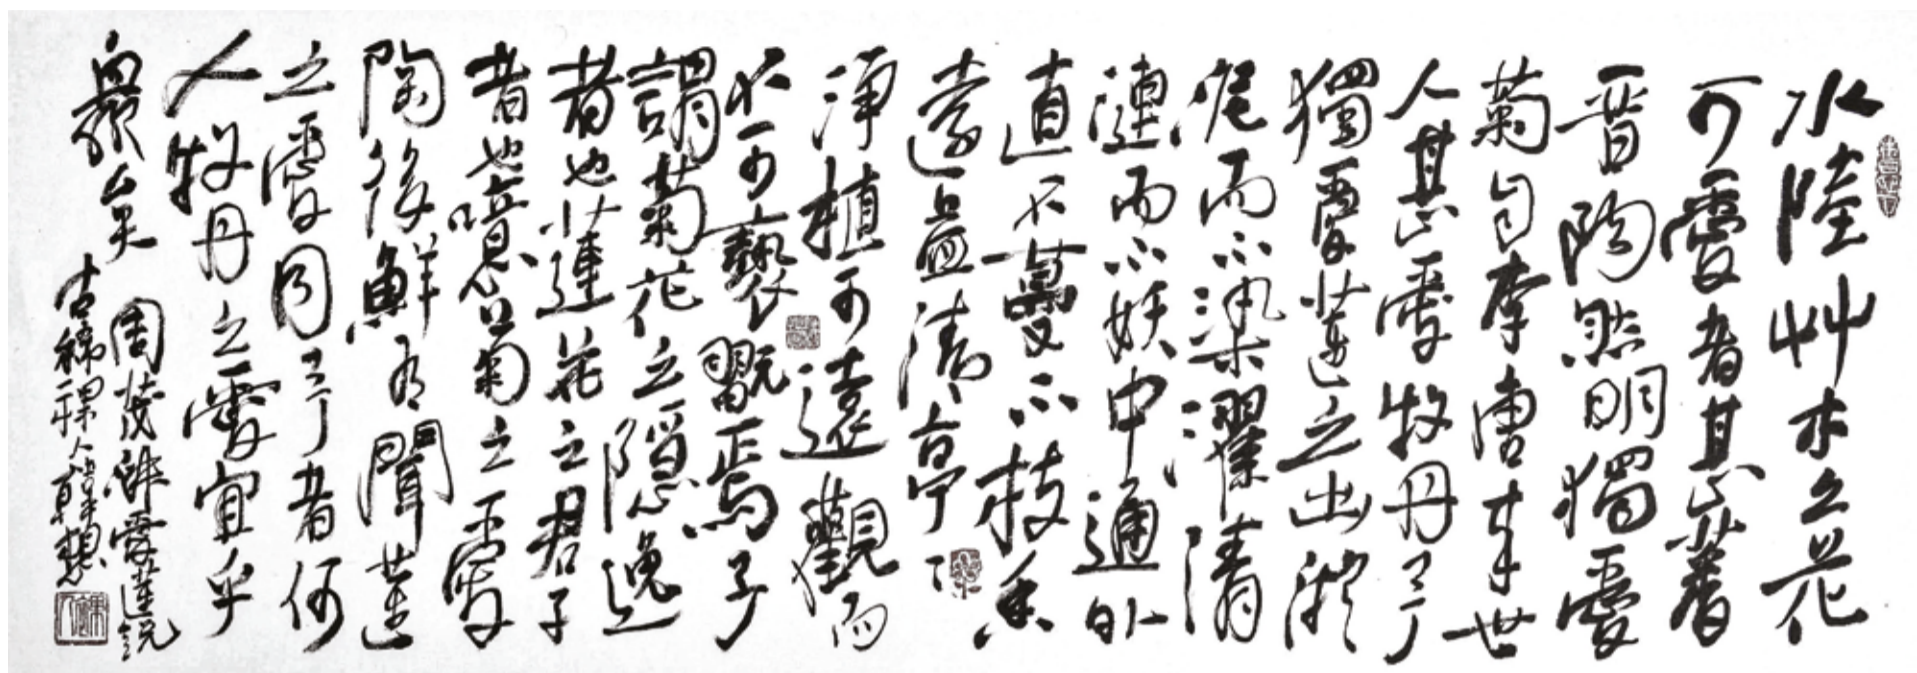 水陸艸木之花
可愛者甚蕃
晉陶然明獨愛
菊自李唐来世
人甚愛牡丹予
獨愛蓮之出淤
泥而不染濯清
漣而不妖中通外
直不蔓不枝香
遠益清亭〻
淨植可遠觀而
不可褻翫焉予
謂菊花之隱逸
者也蓮花之君子
者也噫菊之愛
陶後鮮有聞蓮
之愛同予者何
人牡丹之愛宜乎
衆矣 周茂叔愛蓮説
古稀